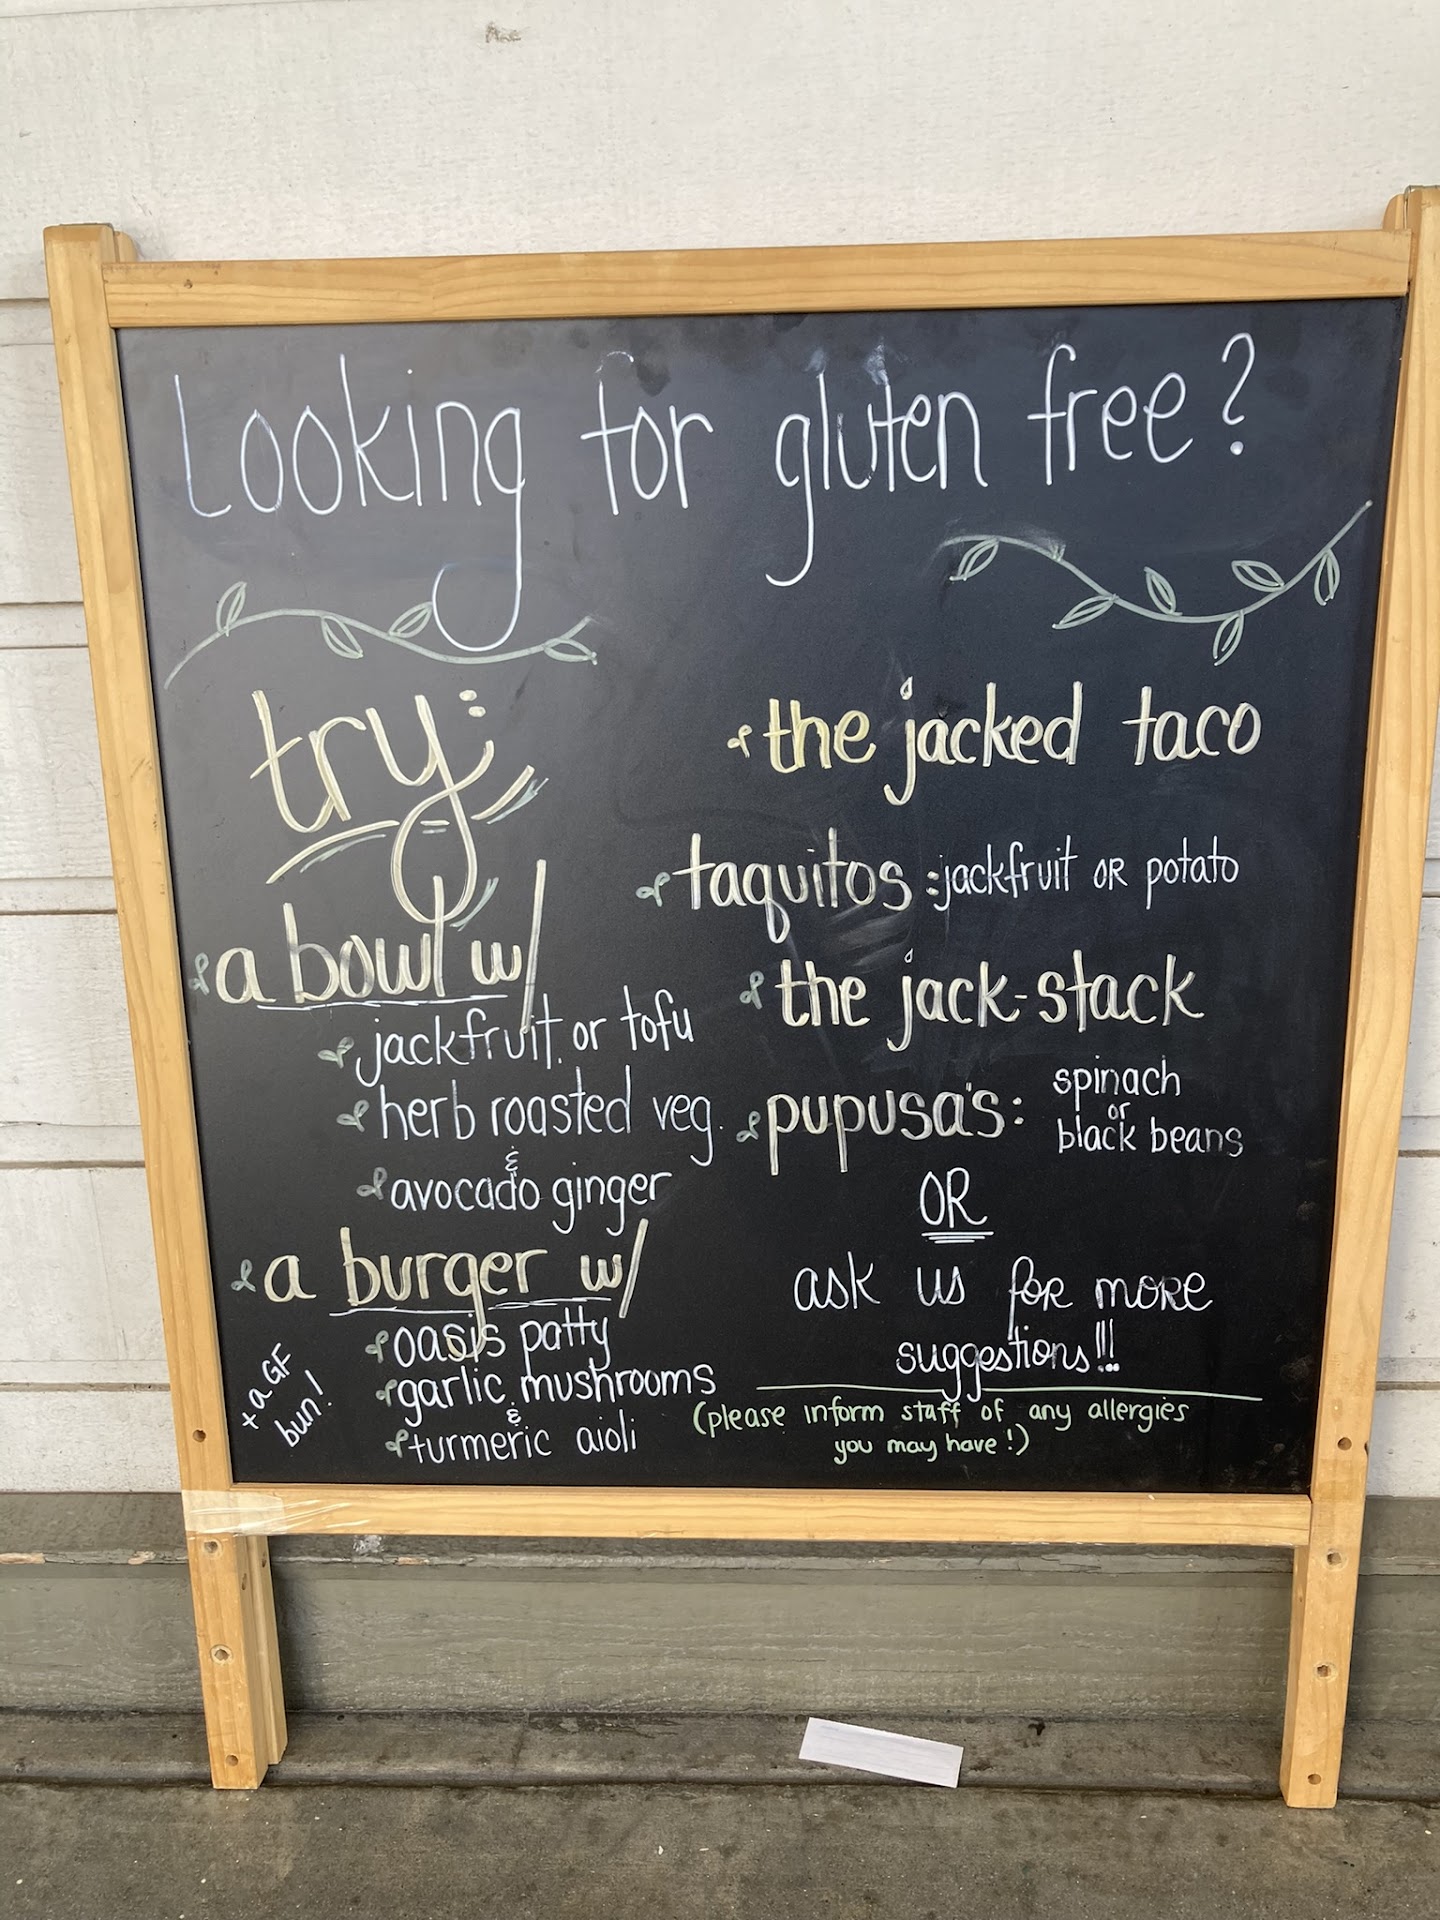 Looking for gluten free?
try:
a bowl w/
jackfruit or tofu
herb roasted veg.
&
avocado ginger
a burger w/
oasis patty
garlic mushrooms
&
turmeric aioli
+ a GF
bun!
the jacked taco
taquitos: jackfruit OR potato
the jack-stack
pupusa's: spinach
or
black beans
OR
ask us for more
suggestions!!!
(please inform staff of any allergies
you may have!)